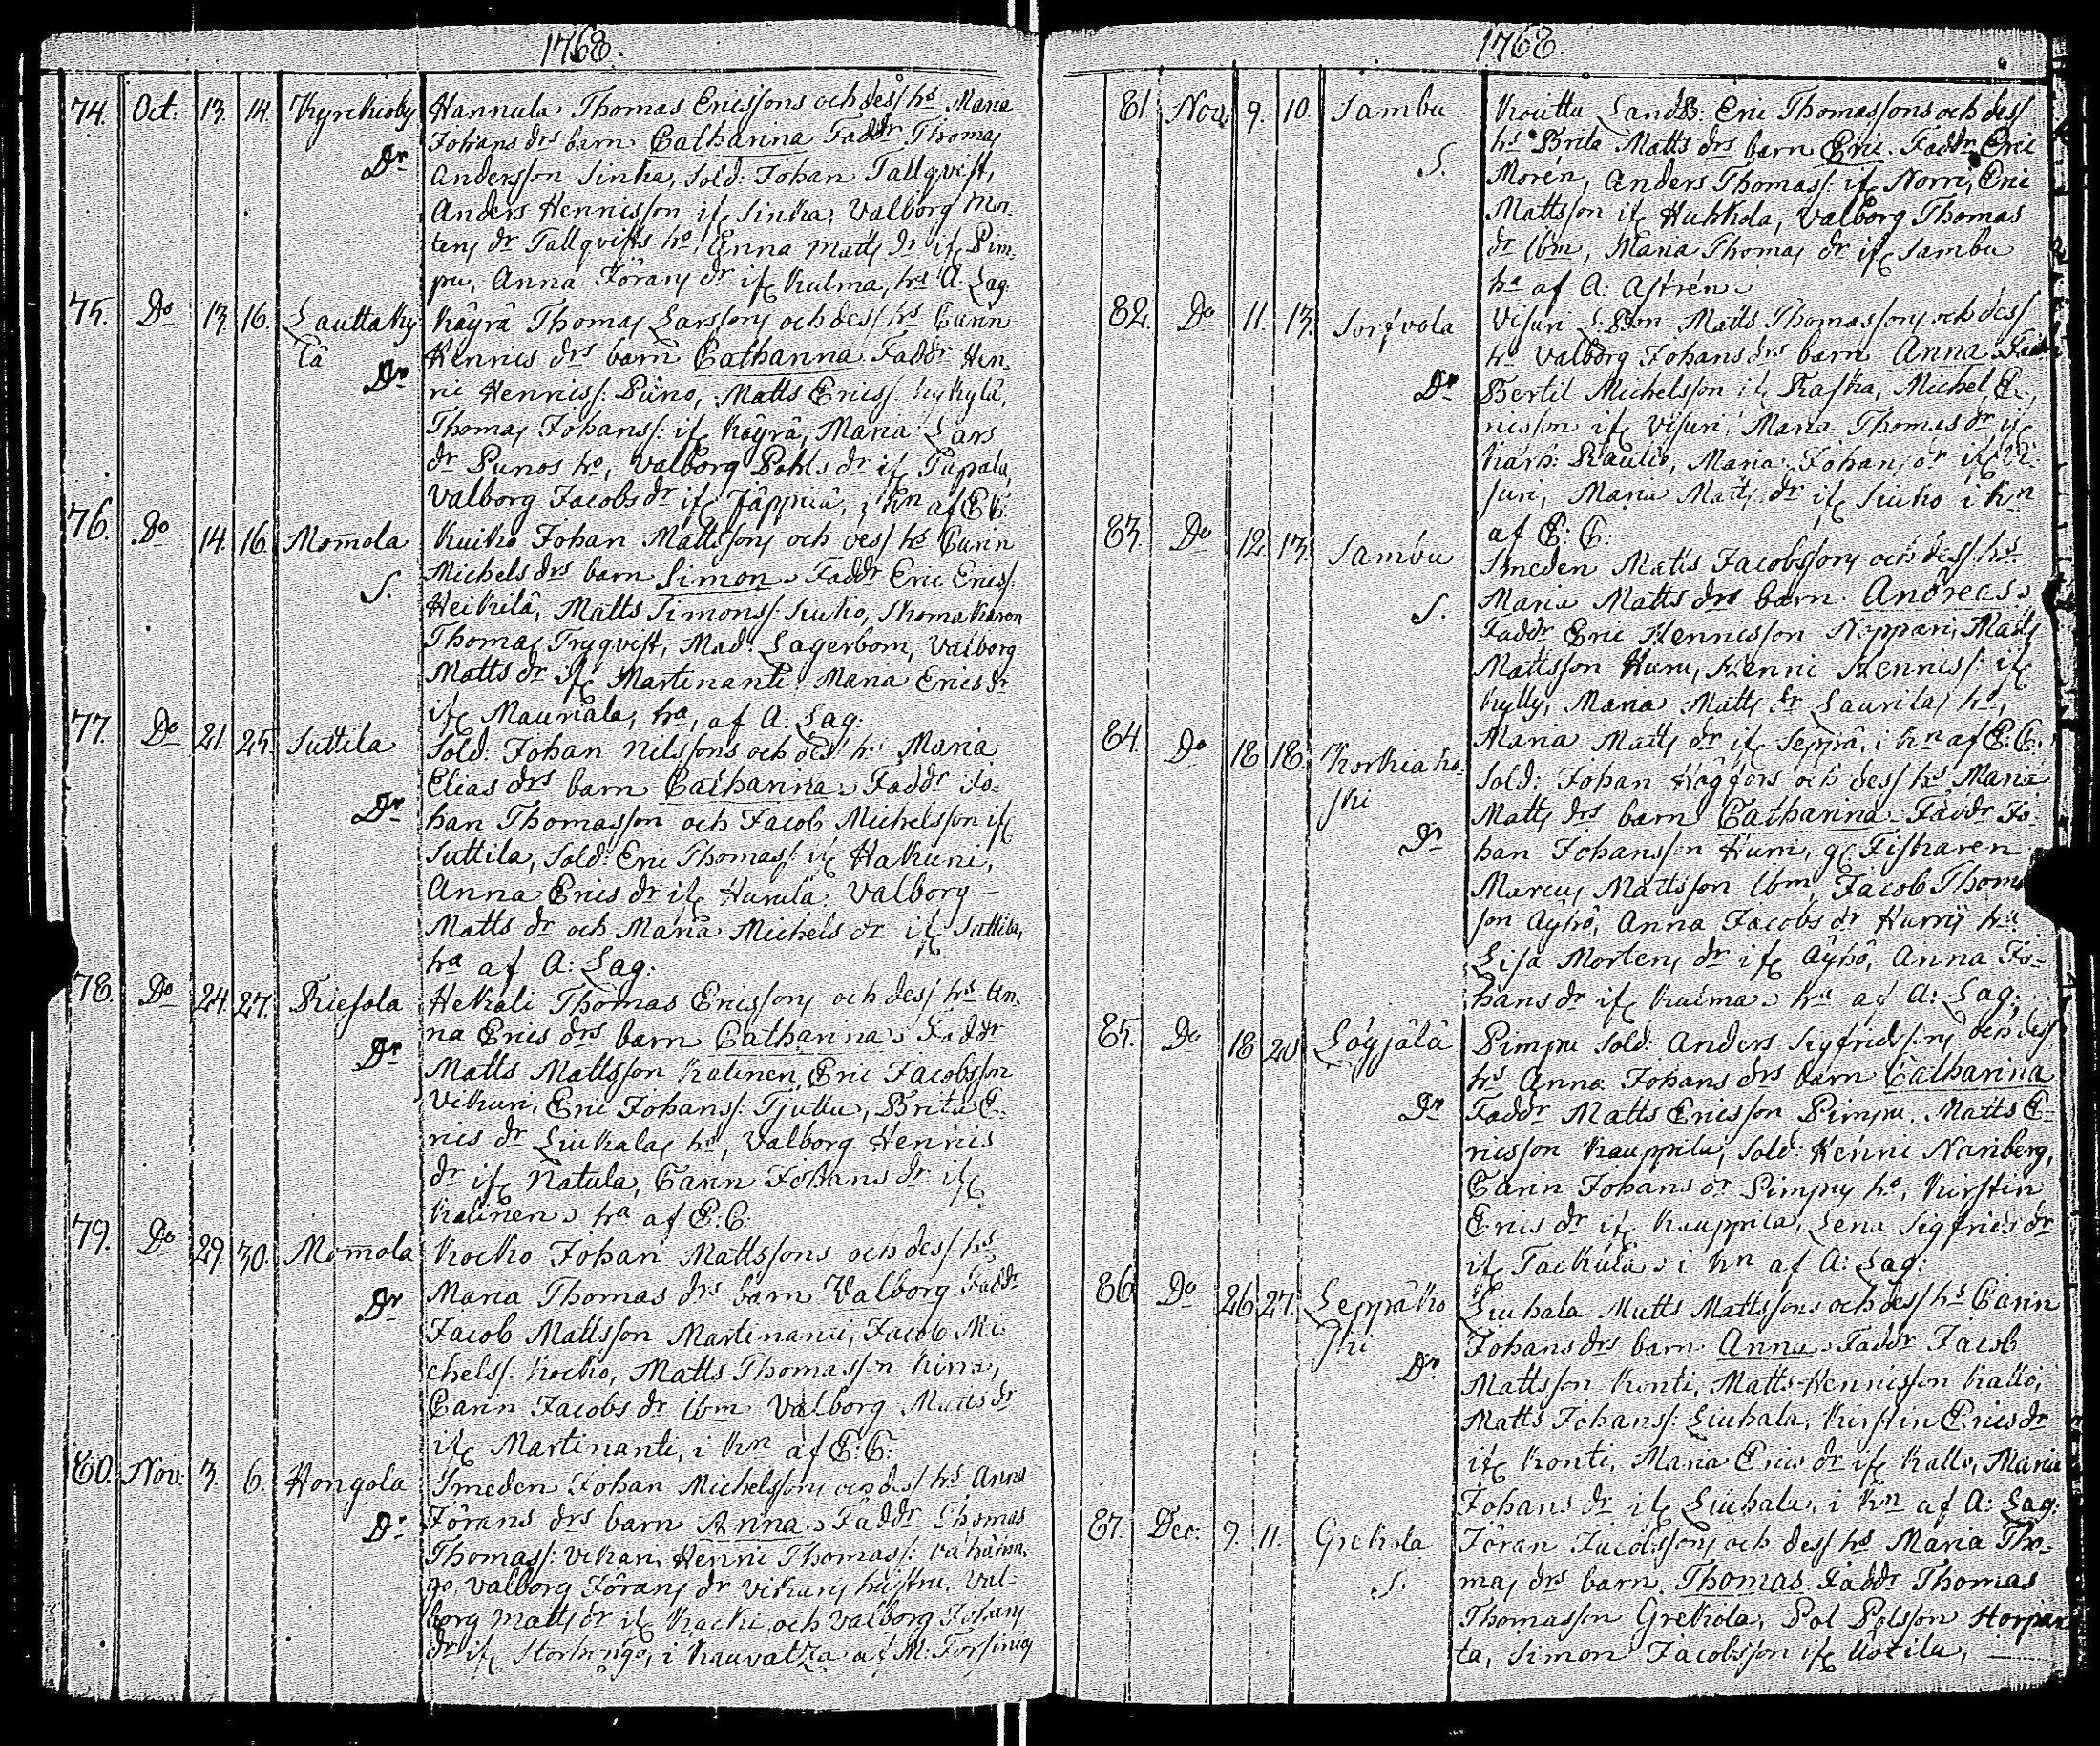 1768.
74. Oct: 13. 14. Kyrckioby Hannula Thomas Ericssons och dess hs Maria
Johans drs barn Catharina Faddr Thomas
Dr Andersson Sinka, Sold: Johan Tallqvist,
Anders Henricsson if Sinka, Valborg Mor-
tens dr Tallqvists ho, Anna Matts dr if Pim-
pu, Anna Jörans dr if Kulma, hs A: Lag.
75. Do 13. 16. Lauttaky- Käyrä Thomas Larssons och dess hs Carin
lä Henrics drs barn Catharina Faddr Hen-
Dr ric Henricss: Puno, Matts Ericss: Kykylä,
Thomas Johanss: if Käyrä, Maria Lars
dr Punos ho, Valborg Pohls dr if Papala,
Valborg Jacobs dr if Jäppiä, i kn af E:C:
76. Do 14. 16. Momola Kuiko Johan Mattssons och dess hs Carin
Michels drs barn Simon. Faddr Eric Ericss:
S. Heikilä, Matts Simonss: Siuko, Skomakaren
Thomas Trygqvist, Mad: Lagerbom, Valborg
Matts dr if Martinanti, Maria Erics dr
if Mauriala, ha, af A: Lag:
77. Do 21. 25. Suttila Sold: Johan Nilssons och dess hs Maria
Elias drs barn Catharina. Faddr Jo-
Dr han Thomasson och Jacob Michelsson if
Suttila, Sold: Eric Thomass: if Hakuni,
Anna Erics dr if Hurula, Valborg
Matts dr och Maria Michels dr if Suttila,
ha af A: Lag:
78. Do 24. 27. Riesola Hekali Thomas Ericssons och dess hs An-
na Erics drs barn Catharina. Faddr
Dr Matts Mattsson Kalinen, Eric Jacobsson
Vikari, Eric Johanss: Tjuttu, Brita E-
rics dr Liukalas ho, Valborg Henrics
dr if Natula, Carin Johans dr if
Kalinen. ha af E:C:
79. Do 29. 30. Momola Kocko Johan Mattssons och dess hs
Maria Thomas drs barn Valborg Faddr
Dr Jacob Mattsson Martinanti, Jacob Mi-
chelss: Kocko, Matts Thomasson
Carin Jacobs dr ibm Valborg Matts dr
if Martinanti, i kn af E:C:
80. Nov: 3. 6. Hongola Smeden Johan Michelssons och dess hs Anna
Dr Jörans drs barn Anna. Faddr Thomas
Thomass: Vikari, Henric Thomass:
Valborg Jörans dr Vikaris hustru, Val-
borg Matts dr if Kacki och Valborg Johans
dr if Storhongo, i Kauvatza af M: Forsinius
1768.
81. Nov: 9. 10. Sambu Kouttu Landb: Eric Thomassons och dess
hs Brita Matts drs barn Eric. Faddr Eric
S. Morén, Anders Thomass: if Norri, Eric
Mattsson if Huhkola, Valborg Thomas
dr ibm, Maria Thomas dr if Sambu
ha af A: Astrén.
82. Do 11. 13. Sorfvola Visuri Matts Thomassons och dess
hs Valborg Johans drs barn Anna Faddr
Dr Bertil Michelsson if Raska, Michel E-
ricsson if Visuri, Maria Thomas dr if
Karh: Raulio, Maria Johans dr if Vi-
suri, Maria Matts dr if Siuko i kn
af E: C:
83. Do 12. 13. Sambu Smeden Matts Jacobssons och dess hs
Maria Matts drs barn Andreas.
S. Faddr Eric Henricsson Noppari, Matts
Mattsson Huru, Henric Henricss: if
Kylly, Maria Matts dr Laurilas ho,
Maria Matts dr if Seppä, i kn af E:C:
84. Do 18. 18. Korkiako- Sold: Johan Höggors och dess hs Maria
ski Matts drs barn Catharina. Faddr Jo-
Dr han Johansson Hurri, gl Fiskaren
Marcus Mattsson ibm, Jacob Thomas-
son Äyhö, Anna Jacobs dr Hurris ha
Lisa Mortens dr if Äyhö, Anna Jo-
hans dr if Kulma. ha af A: Lag:
85. Do 18. 20. Löyjälä Pimpu Sold: Anders Sigfridssons och dess
hs Anna Johans drs barn Catharina
Dr Faddr Matts Ericsson Pimpu, Matts E-
ricsson Kauppila, Sold: Henric Nariberg,
Carin Johans dr Pimpus ho, Kirstin
Erics dr if Kauppila, Lena Sigfrids dr
if Tackula. i kn af A: Lag:
86. Do 26. 27. Leppäko- Liuhala Matts Mattssons och dess hs Carin
ski Johans drs barn Anna. Faddr Jacob
Dr Mattsson Konti, Matts Henricsson Kallo,
Matts Johanss: Liuhala, Kirstin Erics dr
if Konti, Maria Erics dr if Kallo, Maria
Johans dr if Liuhala, i kn af A: Lag:
87. Dec: 9. 11. Grekola Jöran Jacobssons och dess hs Maria Tho-
S. mas drs barn Thomas. Faddr Thomas
Thomasson Grekola, Pol Polsson Horpan-
ta, Simon Jacobsson if Ästila,